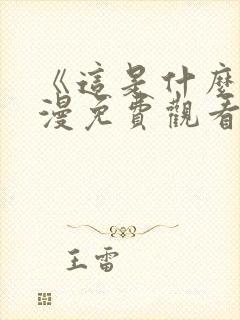 《這是什麼
漫免費觀看
王雷